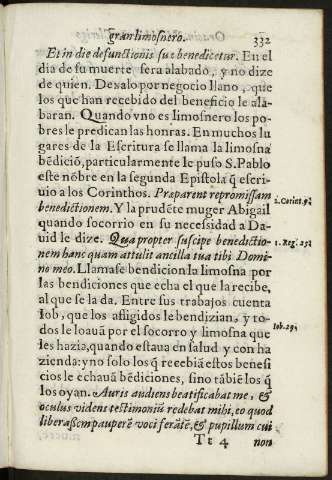 gran limosnero. 332
Et in die defunctionis suæ benedicetur. En el
dia de su muerte sera alabado, y no dize
de quien. Dexalo por negocio llano, que
los que han recebido del beneficio le ala-
baran. Quando vno es limosnero los po-
bres le predican las honras. En muchos lu
gares de la Escritura se llama la limosna
bẽdiciõ, particularmente le puso S. Pablo
este nõbre en la segunda Epistola q̃ escri-
uio a los Corinthos. Præparent repromissam
2. Corint. 9.
benedictionem. Y la prudẽte muger Abigail
quando socorrio en su necessidad a Da-
uid le dize. Quapropter suscipe benedictio-
1. Reg. 25.
nem hanc quam attulit ancilla tua tibi Domi-
no meo. Llamase bendicion la limosna por
las bendiciones que echa el que la recibe,
al que se la da. Entre sus trabajos cuenta
Iob, que los afligidos le bendizian, y to-
dos le loauã por el socorro y limosna que
Iob. 29.
les hazia, quando estaua en salud y con ha
zienda: y no solo los q̃ recebiã estos benefi
cios le echauã bẽdiciones, sino tãbiẽ los q̃
los oyan. Auris audiens beatificabat me, &
oculus videns testimoniũ redebat mihi, eo quod
liberassem pauperẽ vociferãtẽ, & pupillum cui
Tt 4 non